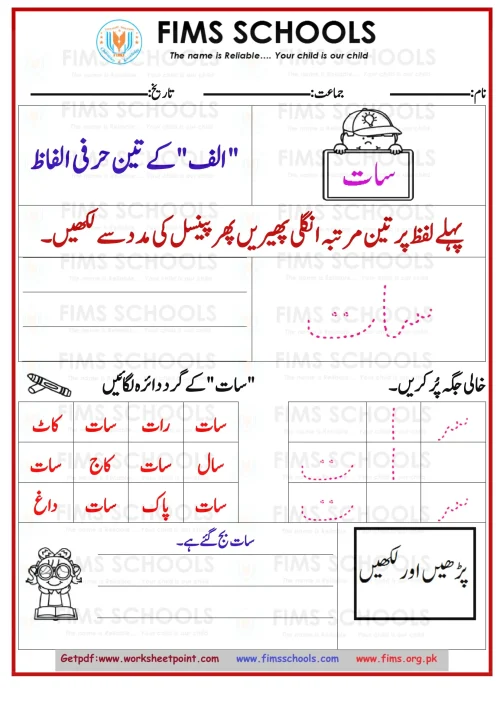 FIMS SCHOOLS
The name is Reliable.... Your child is our child
نام: جماعت: تاریخ:
سات
"الف" کے تین حرفی الفاظ
پہلے لفظ پر تین مرتبہ انگلی پھیریں پھر پینسل کی مدد سے لکھیں۔
سات
خالی جگہ پُر کریں۔
"سات" کے گرد دائرہ لگائیں
سـ ا ت
سـ ا
سـ ت
سات رات سات کاٹ
سال سات کاج سات
سات پاک سات داغ
پڑھیں اور لکھیں
سات بج گئے ہے۔
Getpdf:www.worksheetpoint.com www.fimsschools.com www.fims.org.pk